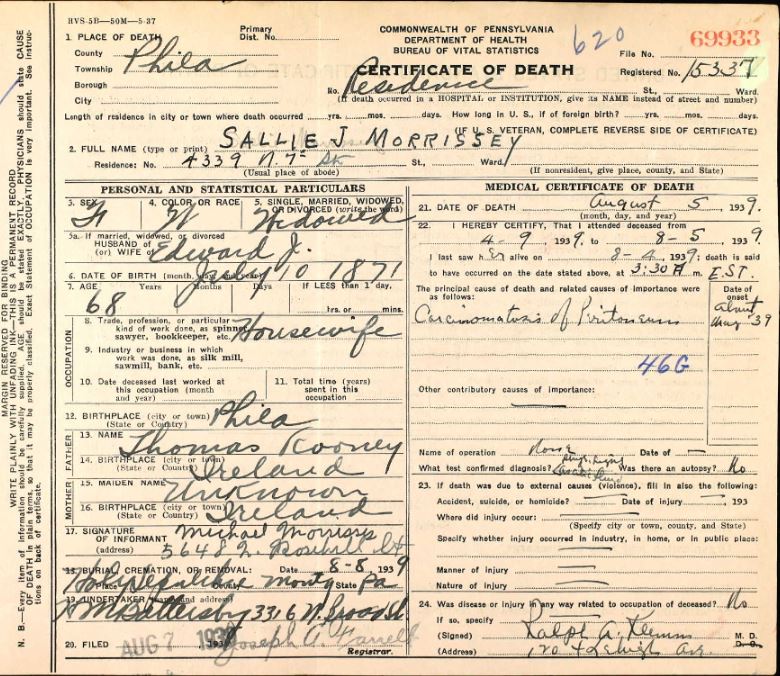 HVS-5B—50M—5-37
COMMONWEALTH OF PENNSYLVANIA
DEPARTMENT OF HEALTH
BUREAU OF VITAL STATISTICS
620
69933
CERTIFICATE OF DEATH
File No.
Registered No. 15337
1. PLACE OF DEATH
Primary
Dist. No.
County
Township Phila
Borough
City
No. Residence St., Ward.
(If death occurred in a HOSPITAL or INSTITUTION, give its NAME instead of street and number)
Length of residence in city or town where death occurred yrs. mos. days. How long in U. S., if of foreign birth? yrs. mos. days.
(IF U. S. VETERAN, COMPLETE REVERSE SIDE OF CERTIFICATE)
2. FULL NAME (type or print) SALLIE J MORRISSEY
Residence: No. 4339 N. 7th St St., Ward.
(Usual place of abode) (If nonresident, give place, county, and State)
PERSONAL AND STATISTICAL PARTICULARS
3. SEX F
4. COLOR OR RACE W
5. SINGLE, MARRIED, WIDOWED, OR DIVORCED (write the word) Widowed
5a. If married, widowed, or divorced
HUSBAND of
(or) WIFE of Edward J.
6. DATE OF BIRTH (month, day, and year) 10 1871
7. AGE Years Months Days If LESS than 1 day, hrs. or mins.
68
OCCUPATION
8. Trade, profession, or particular kind of work done, as spinner, sawyer, bookkeeper, etc. Housewife
9. Industry or business in which work was done, as silk mill, sawmill, bank, etc.
10. Date deceased last worked at this occupation (month and year)
11. Total time (years) spent in this occupation
12. BIRTHPLACE (city or town) Phila
(State or Country)
FATHER
13. NAME Thomas Rooney
14. BIRTHPLACE (city or town)
(State or Country) Ireland
MOTHER
15. MAIDEN NAME Unknown
16. BIRTHPLACE (city or town)
(State or Country) Ireland
17. SIGNATURE OF INFORMANT Michael Morrissey
(address) 5648 N. Rosehill St
18. BURIAL, CREMATION, OR REMOVAL: Date 8-8, 1939
Place Holy Sepulchre County Montg State Pa
19. UNDERTAKER (name and address)
Battersby 3316 N. Broad St
20. FILED AUG 7 1939 Joseph A. Farrell
Registrar.
MEDICAL CERTIFICATE OF DEATH
21. DATE OF DEATH August 5, 1939.
(month, day, and year)
22. I HEREBY CERTIFY, That I attended deceased from
4-9, 1939, to 8-5, 1939.
I last saw her alive on 8-4, 1939; death is said
to have occurred on the date stated above, at 3:30 A m. E.S.T.
The principal cause of death and related causes of importance were as follows:
Date of onset
Carcinomatosis of Peritoneum
about
39
46G
Other contributory causes of importance:
Name of operation None Date of —
What test confirmed diagnosis? Was there an autopsy? No
23. If death was due to external causes (violence), fill in also the following:
Accident, suicide, or homicide? Date of injury , 193
Where did injury occur:
(Specify city or town, county, and State)
Specify whether injury occurred in industry, in home, or in public place:
Manner of injury
Nature of injury
24. Was disease or injury in any way related to occupation of deceased? No
If so, specify
(Signed) Ralph A. M. D.
D.O.
(Address) Lehigh Ave.
MARGIN RESERVED FOR BINDING
WRITE PLAINLY WITH UNFADING INK—THIS IS A PERMANENT RECORD
N. B.—Every item of information should be carefully supplied. AGE should be stated EXACTLY. PHYSICIANS should state CAUSE
OF DEATH in plain terms, so that it may be properly classified. Exact Statement of OCCUPATION is very important. See instruc-
tions on back of certificate.